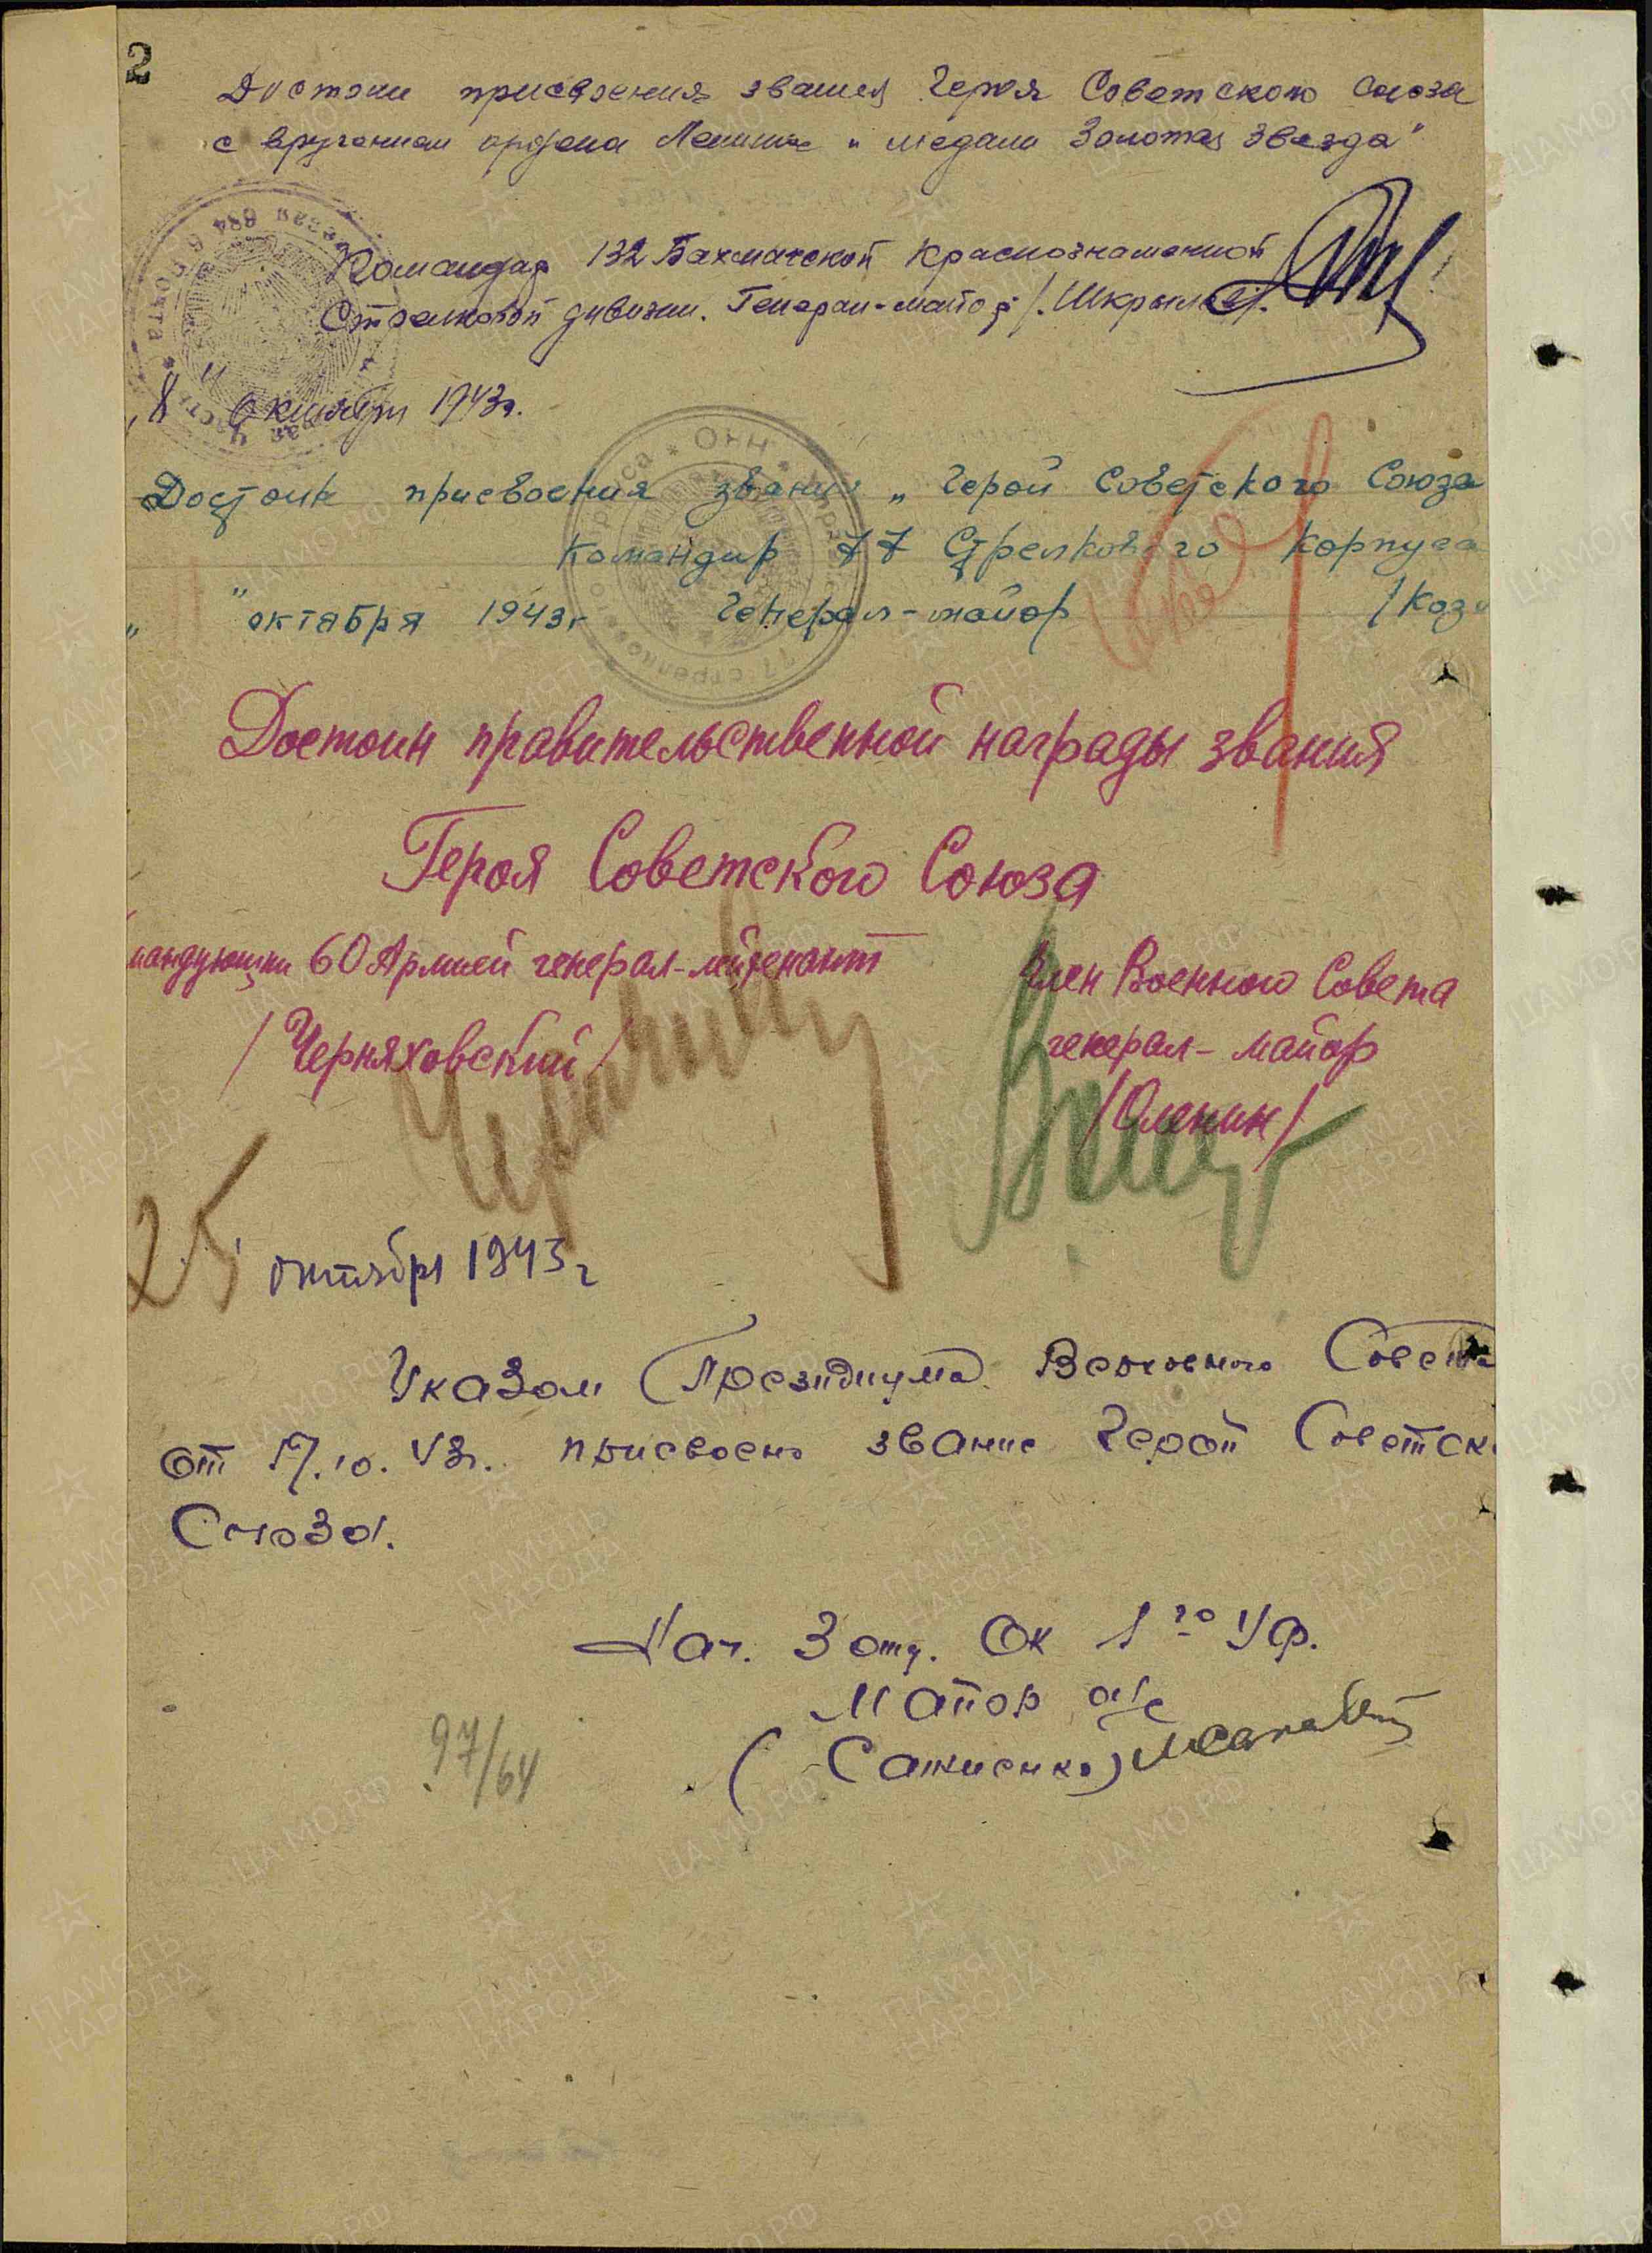 2
Достоин присвоения звания Героя Советского Союза
с вручением ордена Ленина и медали Золотая Звезда"
Командир 132 Бахмачской Краснознаменной
Стрелковой дивизии. Генерал-майор /Шкрылев/.
"8" октября 1943г.
Достоин присвоения звания „Герой Советского Союза
Командир 77 Стрелкового Корпуса
" " октября 1943г Генерал-майор /Коз
Достоин правительственной награды звания
Героя Советского Союза
мандующий 60 Армией генерал-лейтенант
/Черняховский/
Член Военного Совета
генерал-майор
/Оленин/
25 октября 1943г
Указом Президиума Верховного Совета
от 17.10.43г. присвоено звание Герой Советск
Союза.
Нач. 3 отд. ОК 1го Уф.
Майор а/с
97/64
ПАМЯТЬ НАРОДА
ЦАМО.РФ